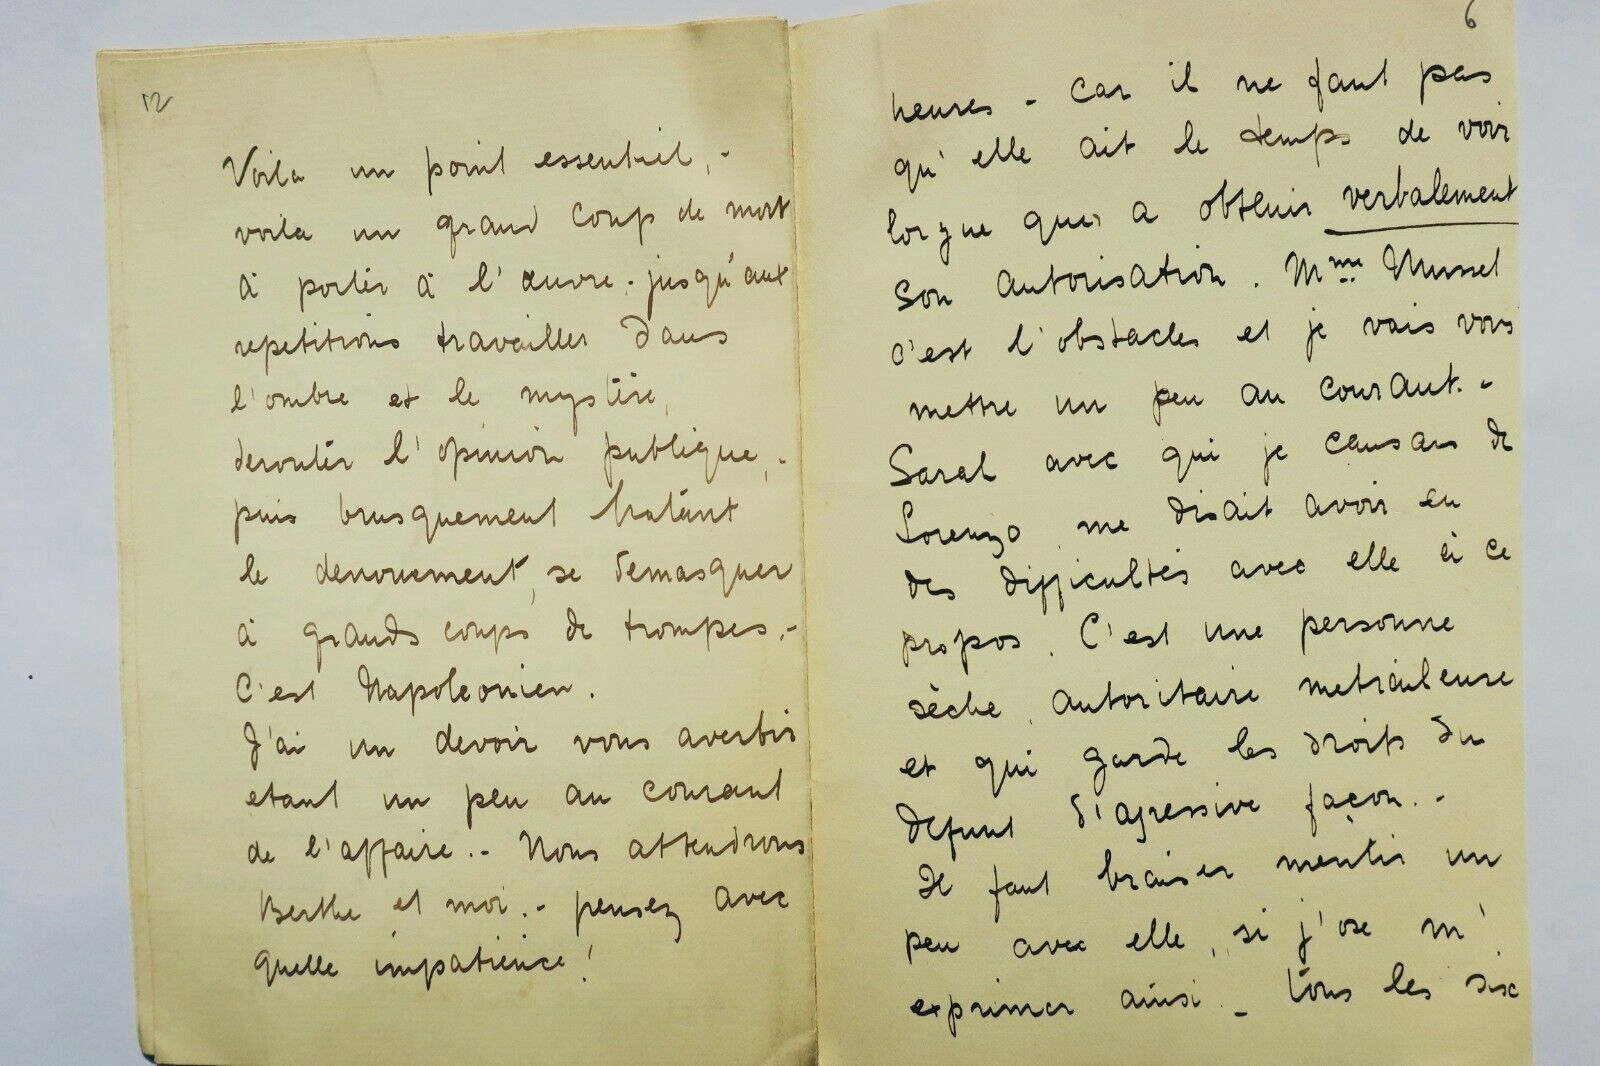 12
Voila un point essentiel, -
voila un grand coup de mort
à porter à l'œuvre. jusqu'aux
repetitions travailler dans
l'ombre et le mystère,
derouter l'opinion publique, -
puis brusquement hatant
le denouement, se demasquer
à grands coups de trompes. -
C'est Napoleonien.
J'ai un devoir vous avertir
etant un peu au courant
de l'affaire. - Nous attendrons
Berthe et moi. - pensez avec
quelle impatience!
6
heures - car il ne faut pas
qu'elle ait le temps de voir
lorgue que a obtenir verbalement
son autorisation. Mme Mussel
c'est l'obstacles et je vais vous
mettre un peu au courant. -
Sarah avec qui je causais de
Lorenzo me disait avoir eu
des difficultés avec elle à ce
propos. C'est une personne
sèche, autoritaire meticuleuse
et qui garde les droits du
defunt d'agressive façon. -
Il faut biaiser mentir un
peu avec elle, si j'ose m'
exprimer ainsi - tous les six